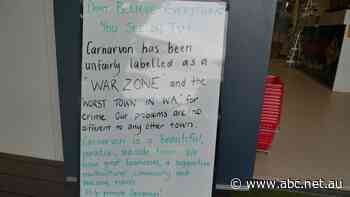 Dont Believe Everything
You See on TV!
Carnarvon has been
unfairly labelled as a
"WAR ZONE" and the
WORST TOWN IN WA" for
crime. Our problems are no
different to any other town.
Carnarvon is a beautiful,
seaside town. We
have great businesses, a supportive
multicultural community and
amazing
www.abc.net.au